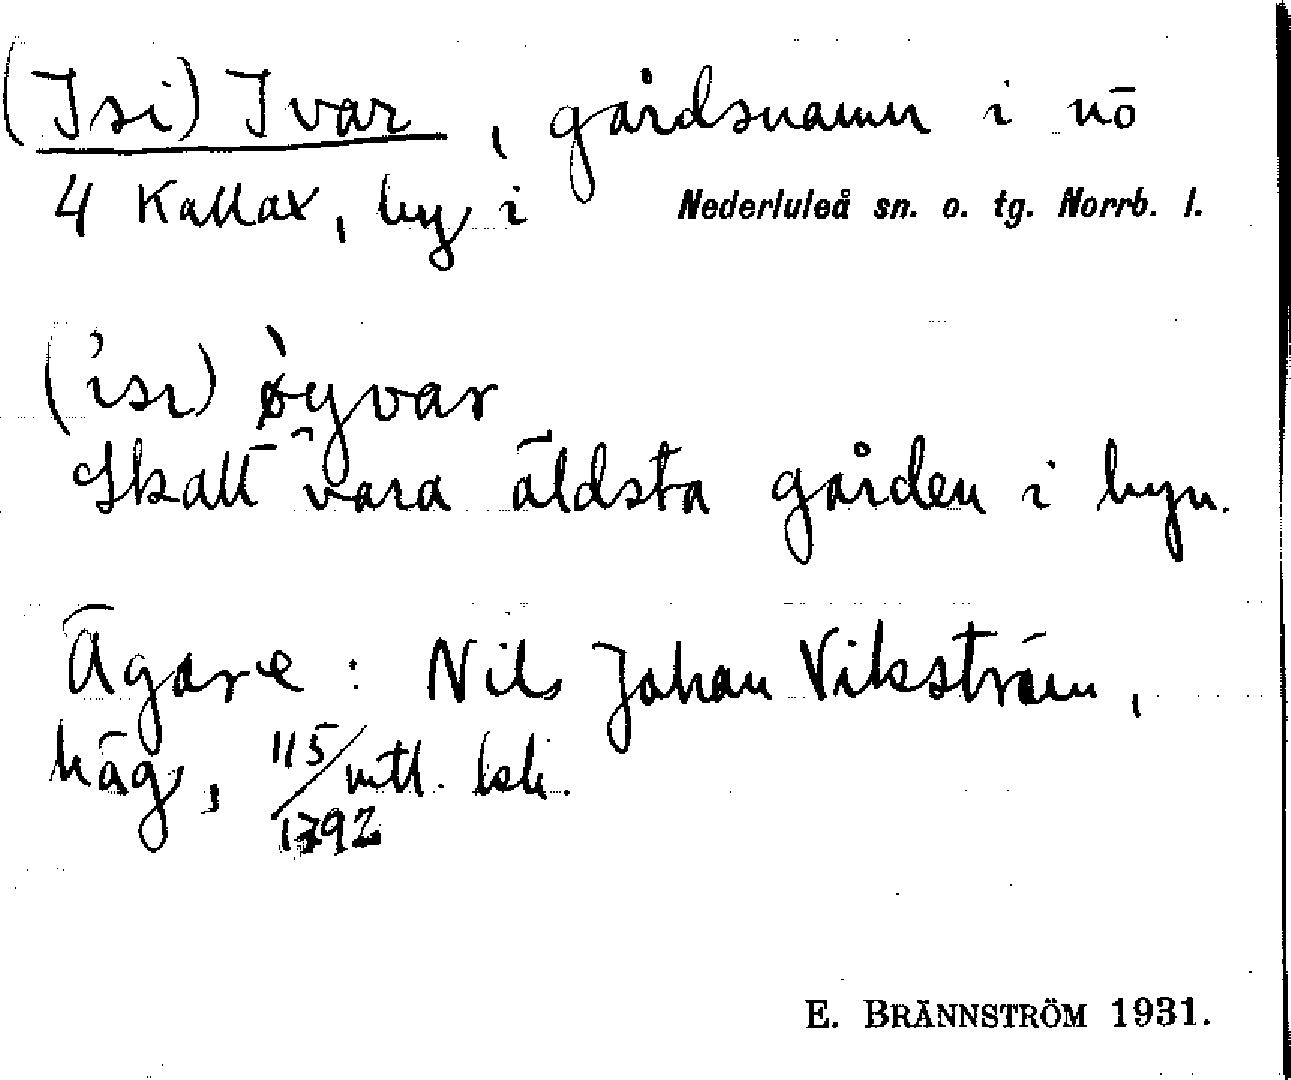 (Isi) Ivar, gårdsnamn i nö
4 Kallax, by i Nederluleå sn. o. tg. Norrb. l.
(ìsi) øyvar
Skall vara äldsta gården i byn.
Ägare: Nils Johan Vikström,
häg, 115/1392 mtl. bsk.
E. BRÄNNSTRÖM 1931.